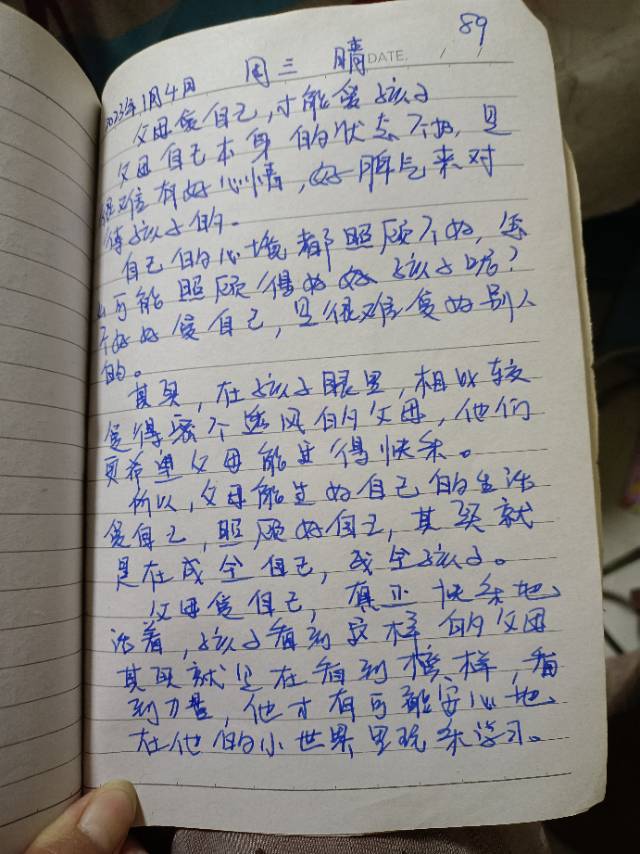 89
DATE.
2023年1月4日 周三 晴
父母爱自己,才能爱孩子
父母自己本身的状态不好,是
很难有好心情,好脾气来对
待孩子的。
自己的心境都照顾不好,怎
么可能照顾得好好孩子呢?
不好好爱自己,是很难爱好别人
的。
其实,在孩子眼里,相比较
爱得密不透风的父母,他们
更希望父母能过得快乐。
所以,父母能过好自己的生活
爱自己,照顾好自己,其实就
是在成全自己,成全孩子。
父母爱自己,真正快乐地
活着,孩子看到这样的父母
其实就是在看到榜样,看
到力量,他才有可能安心地
在他的小世界里玩乐学习。